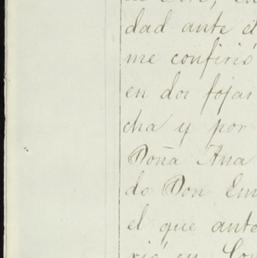 dad ante el
me confirió
en dos fojas
cha y por
Doña Ana
do Don Em
el que ante